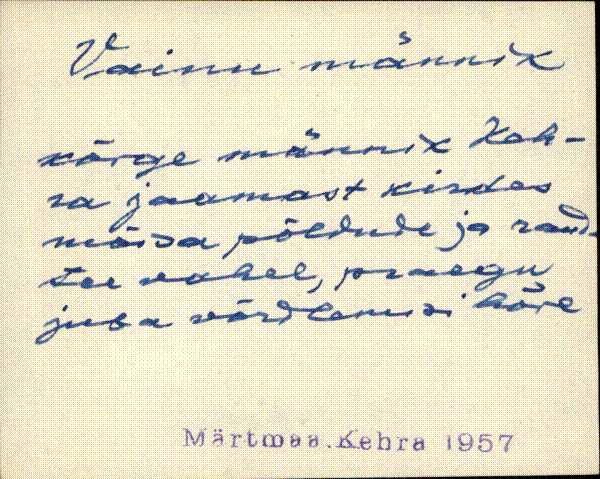 Vainu männik
kõrge männik Keh-
ra jaamast kirdes
mõisa põldude ja raud-
tee vahel, praegu
juba võrdlemisi hõre
Märtmaa.Kehra 1957